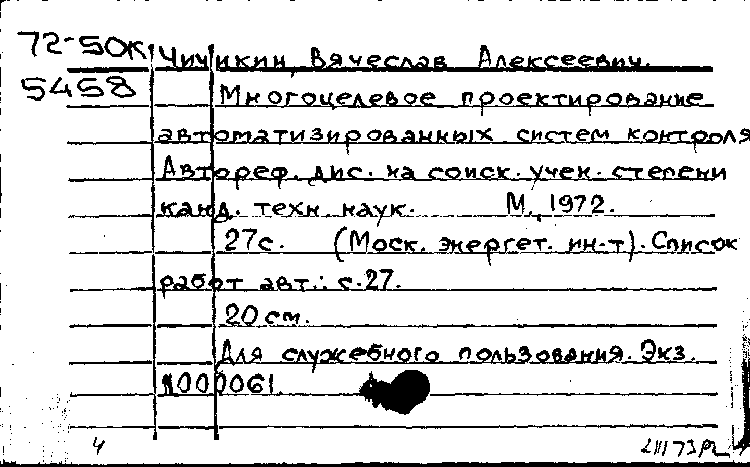 72-50К Чичикин, Вячеслав Алексеевич.
5458 Многоцелевое проектирование
автоматизированных систем контроля
Автореф. дис. на соиск. учен. степени
канд. техн. наук. М., 1972.
27с. (Моск. энергет. ин-т). Список
работ авт.: с.27.
20 см.
Для служебного пользования. Экз.
N000061.
4